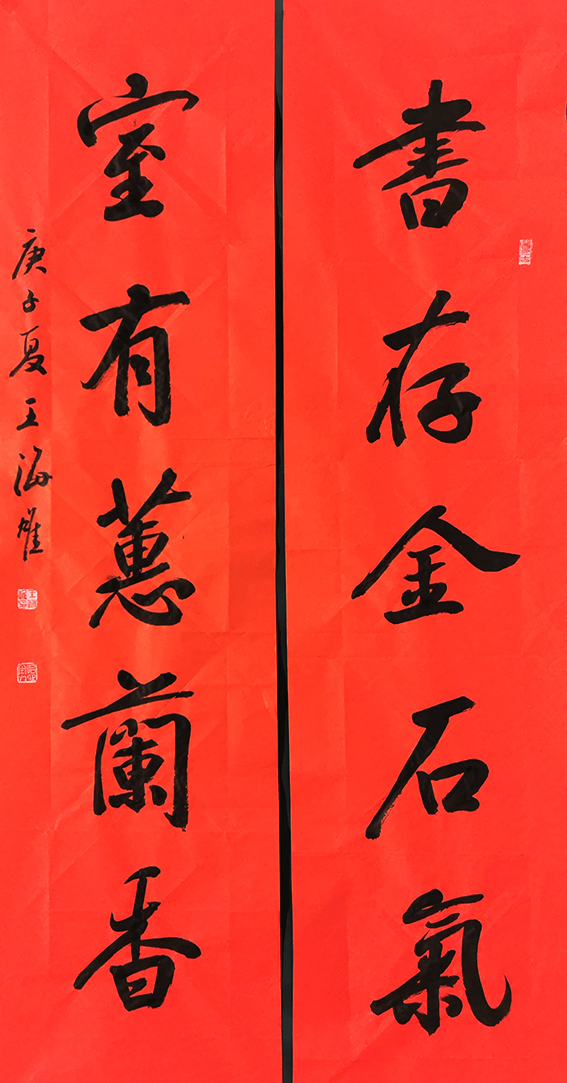 書存金石氣
室有蕙蘭香
庚子夏王海耀